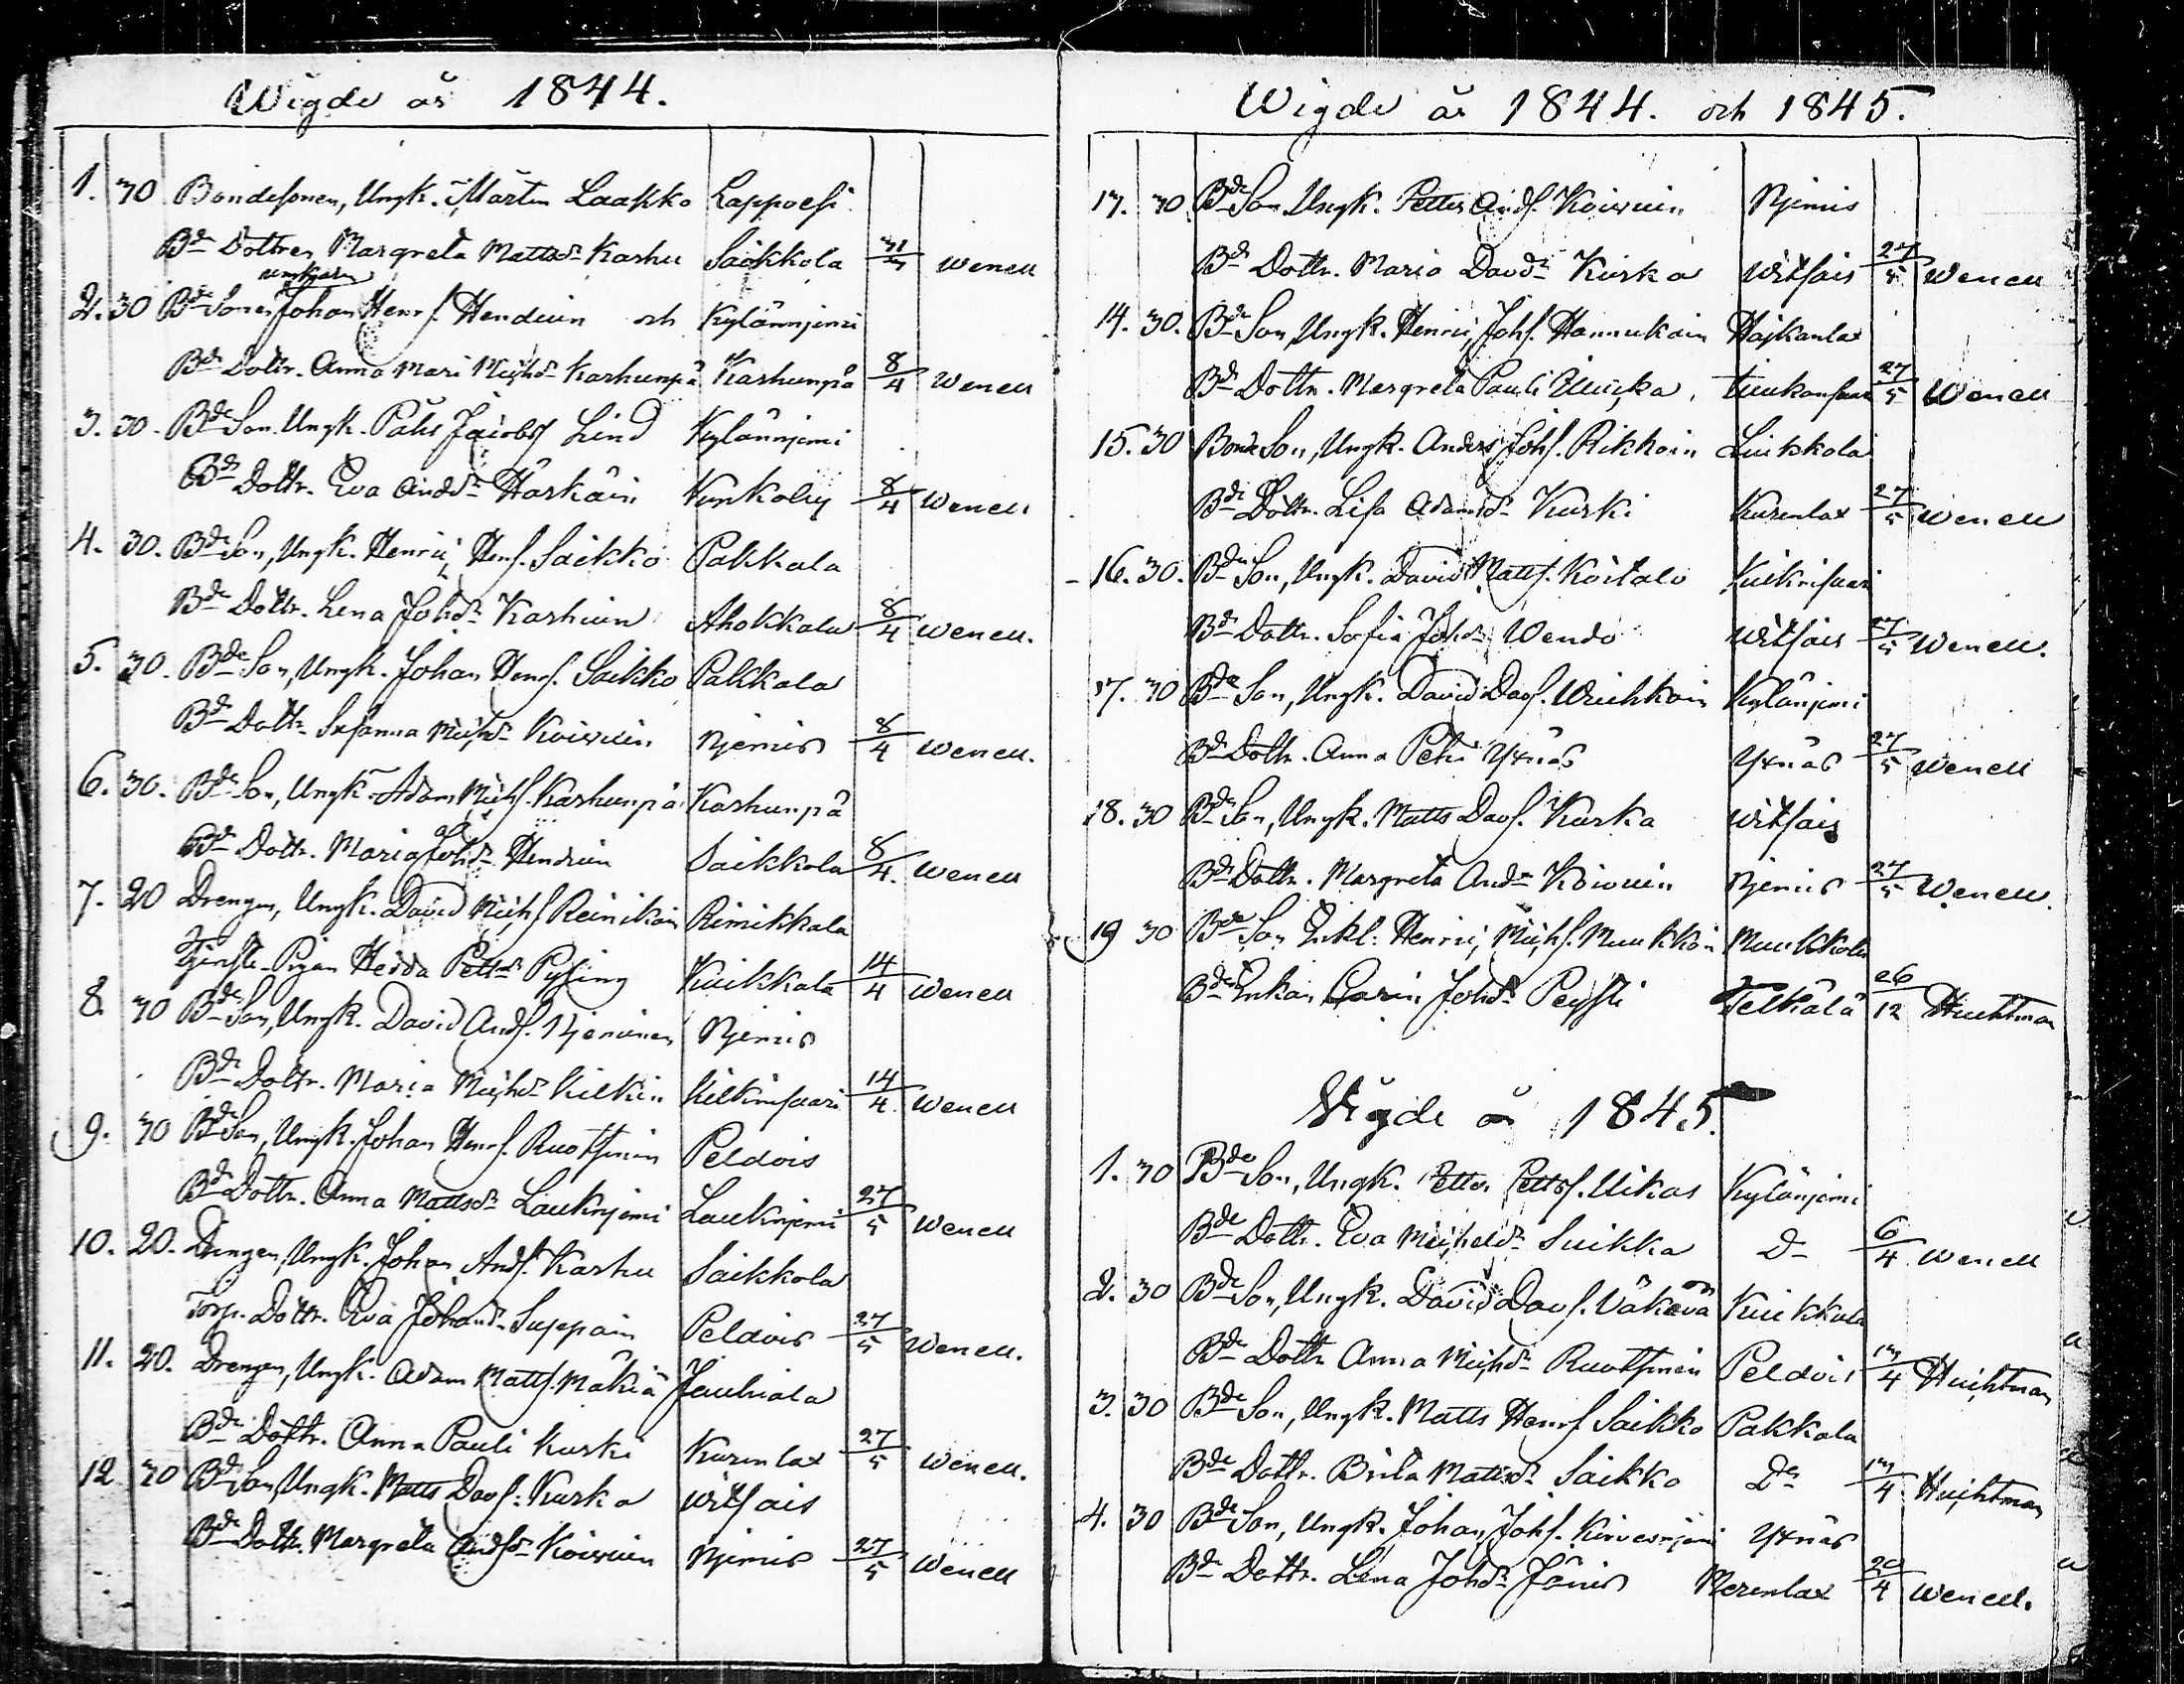 Wigde år 1844.
1. 30 Bondesonen, Ungk. Mårten Laakko Lappvesi
Bde Dottren Margreta Mattsdr Karhu Saikkola 31/3 Wenell
ungkarlen
2. 30 Bde Sonen Johan Henrs. Henduin och Kylänniemi
Bde Dottr. Anna Mari Michsdr Karhunpä Karhunpä 8/4 Wenell
3. 30. Bde Son Ungk. Påhl Jacobs Lind Kylänniemi
Bde Dottr. Eva Andsdr Härkäin 8/4 Wenell
4. 30. Bde Son, Ungk. Henric Hens. Saikko Pakkala
Bde Dottr. Lena Johsdr Karhuin Ahokkala 8/4 Wenell.
5. 30. Bde Son, Ungk. Johan Hens. Saikko Pakkala
Bde Dottr. Susanna Michsdr Koiwuin Njemis 8/4 Wenell.
6. 30. Bde Son, Ungk. Adam Michs. Karhunpä Karhunpä
Bde Dottr. Maria Johsdr Henduin Saikkola 8/4. Wenell
7. 20 Drengen, Ungk. David Michs Reinikain Rinikkala
Tjenste-Pigan Hedda Pettsdr Pysing Kuikkala 14/4 Wenell
8. 30 Bde Son, Ungk. David Ands. Njeminen Njemis
Bde Dottr. Maria Michsdr Kilkin Kilkinsaari 14/4 Wenell
9. 30 Bde Son, Ungk. Johan Henrs. Ruotsinin Peldois
Bde Dottr. Anna Mattsdr Lauknjemi Lauknjemi 27/5 Wenell
10. 20. Drengen, Ungk. Johan Ands. Karhu Saikkola
Torp. Dottr. Eva Johansdr Seppäin Peldois 27/5 Wenell.
11. 20. Drengen, Ungk. Adam Matts. Mäkiä Jauhiala
Bde Dottr. Anna Pauli Kurki Kurenlax 27/5 Wenell.
12 30 Bde Son, Ungk. Matts Davs. Kurka Witsais
Bde Dottr. Margreta Andsdr Koiwuin Njemis 27/5 Wenell
Wigde år 1844. och 1845.
13. 30 Bde Son Ungk. Petter Ands. Koiwuin Njemis
Bde Dottr. Maria Davdr Kurka Witsais 27/5 Wenell
14. 30. Bde Son, Ungk. Henric Johs. Hannukain Haikanlax
Bde Dottr. Margreta Pauli 27/5 Wenell
15. 30 Bonde Son, Ungk. Anders Johs. Rikkoin Liukkola
Bde Dottr. Lisa Adamsdr Kurki Kurenlax 27/5 Wenell
16. 30. Bde Son, Ungk. David Matts. Koitalo
Bde Dottr. Sofia Johsdr Wendo Witsais 27/5 Wenell.
17. 30 Bde Son, Ungk. David Davs. Kylänjemi
Bde Dottr. Anna Petri Yxnäs Yxnäs 27/5 Wenell
18. 30 Bde Son, Ungk. Matts Davs. Kurka Witsais
Bde Dottr. Margreta Andsdr Koiwuin Njemis 27/5 Wenell.
19 30 Bde Son Enkl. Henric Michs. Muukkoin Muukkola
Bde Enkan Carin Johsdr Peysti Telkälä 26/12 Huchtman
Wigde år 1845.
1. 30 Bde Son, Ungk. Petter Petts. Uikas Kylänjemi
Bde Dottr. Eva Michelsdr Suikka Do 6/4 Wenell
2. 30 Bde Son, Ungk. David Davs. Väkevä Kuikkala
Bde Dottr Anna Michsdr Ruotsinin Peldois 13/4 Huchtman
3. 30 Bde Son, Ungk. Matts Henrs Saikko Pakkala
Bde Dottr. Brita Mattsdr Saikko Do 13/4 Huchtman
4. 30 Bde Son, Ungk. Johan Johs. Kirvesnjemi Yxnäs
Bde Dottr. Lena Johsdr Jänis Merenlax 20/4 Wenell.